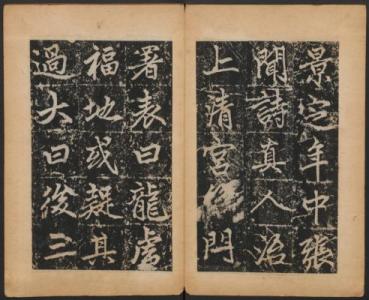 景定年中張
聞詩真人治
上清宮修門
署表曰龍虎
福地或疑其
過大曰後三